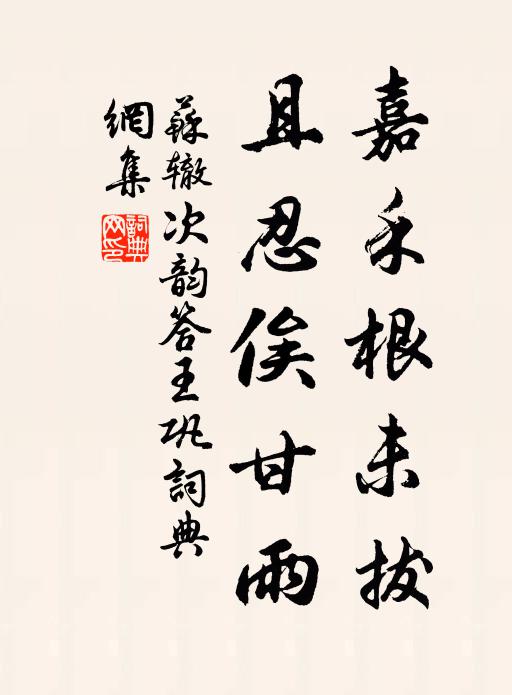 嘉禾根未拔
且忍俟甘雨
蘇辙次韵答王巩詞典
網集
詞典
网印